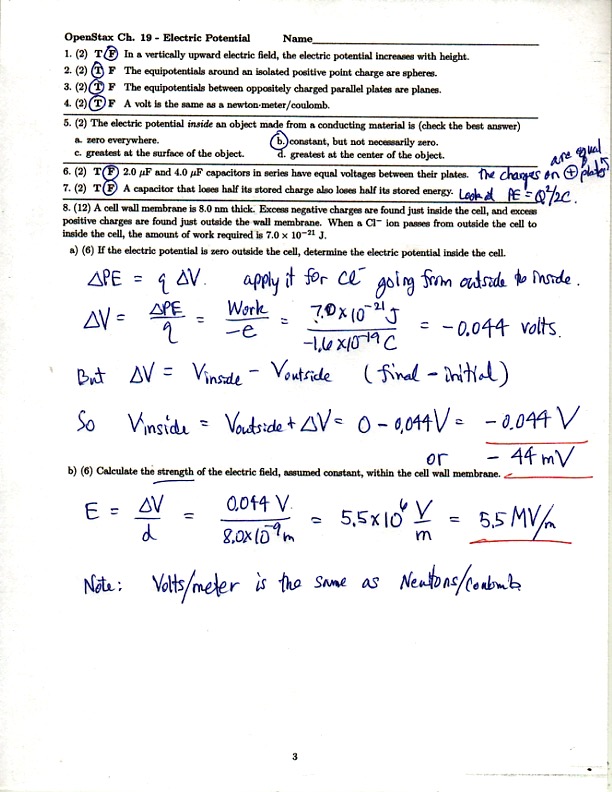 OpenStax Ch. 19 - Electric Potential Name
1. (2) T F In a vertically upward electric field, the electric potential increases with height.
2. (2) T F The equipotentials around an isolated positive point charge are spheres.
3. (2) T F The equipotentials between oppositely charged parallel plates are planes.
4. (2) T F A volt is the same as a newton·meter/coulomb.
5. (2) The electric potential inside an object made from a conducting material is (check the best answer)
a. zero everywhere. b. constant, but not necessarily zero.
c. greatest at the surface of the object. d. greatest at the center of the object.
are equal
6. (2) T F 2.0 μF and 4.0 μF capacitors in series have equal voltages between their plates. The charges on + plates
7. (2) T F A capacitor that loses half its stored charge also loses half its stored energy. Look at PE = Q²/2C.
8. (12) A cell wall membrane is 8.0 nm thick. Excess negative charges are found just inside the cell, and excess
positive charges are found just outside the wall membrane. When a Cl⁻ ion passes from outside the cell to
inside the cell, the amount of work required is 7.0 × 10⁻²¹ J.
a) (6) If the electric potential is zero outside the cell, determine the electric potential inside the cell.
ΔPE = q ΔV. apply it for Cl⁻ going from outside to inside.
ΔV = ΔPE/q = Work/-e = 7.0×10⁻²¹ J/-1.6×10⁻¹⁹ C = -0.044 volts.
But ΔV = Vinside - Voutside (final - initial)
So Vinside = Voutside + ΔV = 0 - 0.044V = -0.044 V
or - 44 mV
b) (6) Calculate the strength of the electric field, assumed constant, within the cell wall membrane.
E = ΔV/d = 0.044 V/8.0×10⁻⁹ m = 5.5×10⁶ V/m = 5.5 MV/m
Note: Volts/meter is the same as Newtons/Coulomb
3